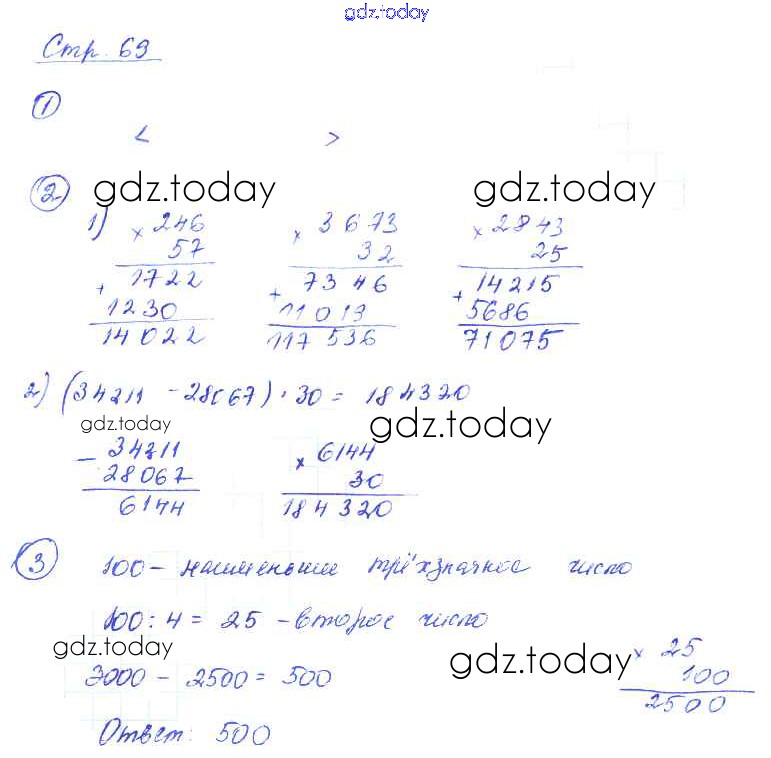 gdz.today
Стр. 69
1
< >
2
gdz.today gdz.today
1) × 246 × 3673 × 2843
57 32 25
+ 1722 + 7346 + 14215
1230 11019 5686
14022 117536 71075
2) (34211 - 28067) · 30 = 184320
gdz.today gdz.today
- 34211 × 6144
28067 30
6144 184320
3 100 - наименьшее трёхзначное число
100 : 4 = 25 - второе число
gdz.today gdz.today × 25
3000 - 2500 = 500 100
2500
Ответ: 500
gdz.today